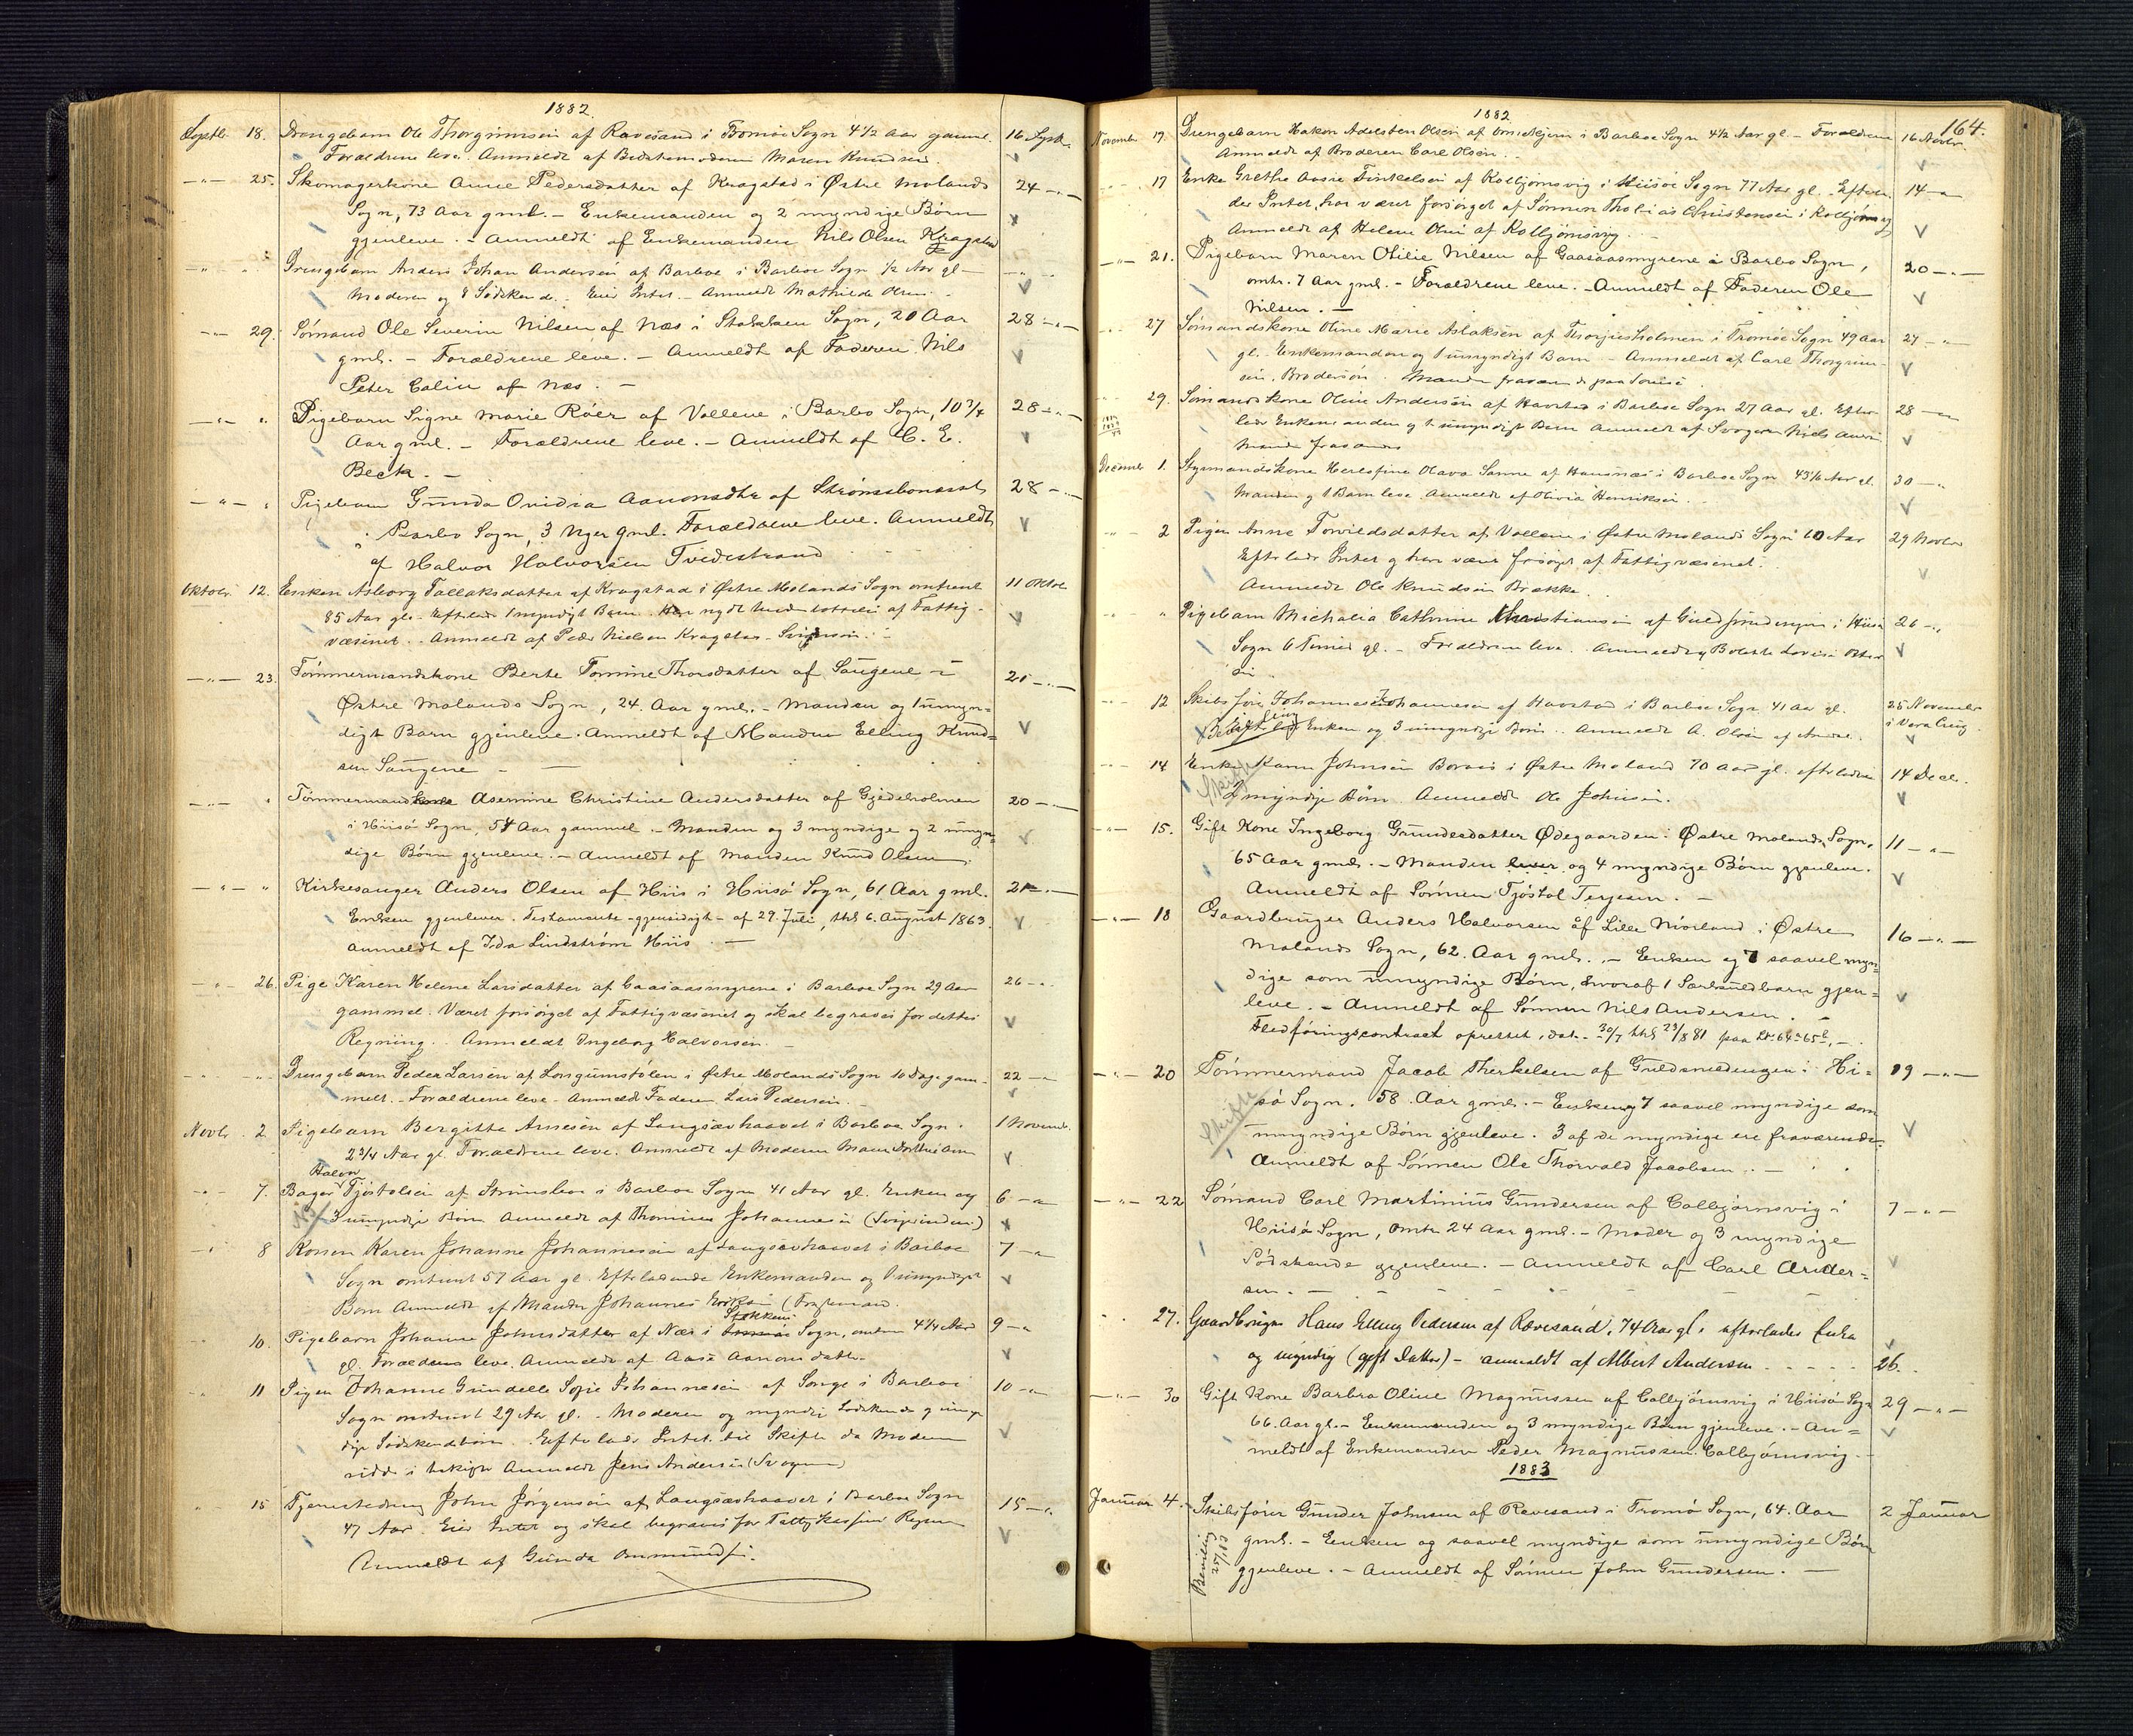 1882.
Septbr 18. Drengebarn Ole Thorgrimsen af Ravesand i Tromøe Sogn 4 1/2 Aar gamml. 16 Septb.
Forældrene leve. Anmeldt af Bedstemoderen Maren Knudsen.
—"— 25. Skomagerkone Anne Pedersdatter af Kragstad i Østre Molands 24 —"—
Sogn, 73 Aar gml. – Enkemanden og 2 myndige Børn
gjenleve. – Anmeldt af Enkemanden Nils Olsen Kragstad
—"— " Drengebarn Anders Johan Andersen af Barboe i Barboe Sogn 1/2 Aar gl – —"—
Moderen og 8 Sødskende. Eier Intet. – Anmeldt Mathilde Olsen.
—"— 29. Sømand Ole Severin Nilsen af Næs i Stokken Sogn, 20 Aar 28 —"—
gml. – Forældrene leve. – Anmeldt af Faderen Nils
Peter Calin af Næs. –
—"— " Pigebarn Signe Marie Röer af Vollene i Barbo Sogn, 10 3/4 28 —"—
Aar gml. – Forældrene leve. – Anmeldt af C. E.
Beck. –
—"— " Pigebarn Gunda Ovidia Aanonsdtr af Strømsbonæset 28 —"—
i Barbo Sogn, 3 Uger gml. Forældrene leve. Anmeldt
af Halvor Halvorsen Tvedestrand
Oktobr. 12. Enken Asborg Tallaksdatter af Kragstad i Østre Molands Sogn omtrent 11 Oktob.
85 Aar gl. Efterlader 1 myndigt Barn. Har nydt Understøttelse af Fattig-
væsenet. Anmeldt af Peder Nielsen Kragstad – Svigersøn. –
—"— 23. Tømmermandskone Berte Tomine Thorsdatter af Saugene i 21 —"—
Østre Molands Sogn, 24. Aar gml. – Manden og 1 umyn=
digt Barn gjenleve. Anmeldt af Manden Elling Knud=
sen Saugene – —
—"— " Tømmermandskone Asemine Christine Andersdatter af Gjedeholmen 20 —"—
i Hiisø Sogn, 54 Aar gammel – Manden og 3 myndige og 2 umyn=
dige Børn gjenleve. – Anmeldt af Manden Knud Olsen.
—"— " Kirkesanger Anders Olsen af Hiis i Hiisø Sogn, 61 Aar gml. 21 —"—
Enken gjenlever. Testamente – gjensidigt – af 29. Juli, thl. 6. August 1863.
Anmeldt af Ida Lindstrøm Hiis. —
—"— 26. Pige Karen Helene Larsdatter af Gaasaasmyrene i Barboe Sogn 29 Aar 26 —"
gammel. Været forsørget af Fattigvæsenet og skal begraves for dettes
Regning. Anmeldt Ingeborg Halvorsen. –
" "– Drengebarn Peder Larsen af Longumstølen i Østre Molands Sogn 10 Dage gam- 22 —"
melt. – Forældrene leve. Anmeldt Faderen Lars Pedersen. –
Novbr. 2. Pigebarn Bergitte Arnesen af Langsævhaavet i Barboe Sogn. 1 Novemb.
2 3/4 Aar gl. Forældrene leve. Anmeldt af Moderen
Halvor
7. Bager Tjøstolsen af Strømsboe i Barboe Sogn 41 Aar gl. Enken og 6 —"
3 umyndige Børn Anmeldt af Thomine Johannesen (Svigerinden)
8 Konen Karen Johanne Johannesen af Langsævhaavet i Barboe 7 —"
Sogn omtrent 57 Aar gl. Efterladende Enkemanden og 1 umyndigt
Barn Anmeldt af Manden Johannes
Stokken
10. Pigebarn Johanne Johnsdatter af Næs i Sogn, omtr. 4 1/4 Aar 9 —"
gl. Forældrene leve. Anmeldt af Aase Aanonsdatter
11 Pigen Johanne Gundelle Sofie Johannesen af Songe i Barboe 10 —"
Sogn omtrent 29 Aar gl. Moderen og myndige Sødskende og umyn
dige Sødskendebørn. Efterlader Intet til Skifte da Moderen
sidder i uskiftet Anmeldt Jens Andersen (Svogeren)
15 Tjenestedreng John Jørgensen af Langsævhaavet i Barboe Sogn 15 —"
47 Aar. Eier Intet og skal begraves for Fattigkassens Regning
Anmeldt af Gunda Ommundsen.
1882
164.
November 17. Drengebarn Hakon Adelsten Olsen af i Barboe Sogn 4 1/2 Aar gl. – Forældrene 16 Novbr.
Anmeldt af Broderen Carl Olsen.
17 Enke Grethe Aasse Terkelsen af Kolbjørnsvig i Hiisøe Sogn 77 Aar gl. Efterla- 14 —"
der Intet, har været forsørget af Sønnen Tobias Christensen i Kolbjørnsvig
Anmeldt af Helene Olsen af Kolbjørnsvig.
—"— 21. Pigebarn Maren Otilie Nilsen af Gaasaasmyrene i Barbo Sogn, 20 —"—
omtr. 7 Aar gml. – Forældrene leve. – Anmeldt af Faderen Ole
Nilsen. —
27 Sømandskone Oline Marie Aslaksen af Thorjusholmen i Tromøe Sogn 49 Aar 27 —"
gl. Enkemanden og 1 umyndigt Barn – Anmeldt af Carl Thorgrim-
sen, Brodersøn. Manden fraværende paa
29. Sømandskone Oline Andersen af Havstad i Barboe Sogn 27 Aar gl. Efter- 28 —"
lader Enkemanden og 1 umyndigt Barn Anmeldt af Svogeren Niels
Manden fraværende
Decembr 1. Styrmandskone Olava Sanne af i Barboe Sogn 43 1/2 Aar gl. 30 —"
Manden og 1 Barn leve. Anmeldt af Olivia Henriksen.
2 Pigen Anne Torvildsdatter af Vollene i Østre Molands Sogn 60 Aar 29 Novbr
Efterlader Intet og har været forsørget af Fattigvæsenet.
Anmeldt Ole Knudsen Brække.
" Pigebarn Michalia Cathrine Christiansen af Guldsmedengen i Hiisø 26 —"
Sogn 6 Timer gl. – Forældrene leve. Anmeldt af Bolette Lovise
sen
12 Skibsfører Johannes Johannesen af Havstad i Barboe Sogn 41 Aar gl. 25 November
Efterlader Enken og 3 umyndige Børn. Anmeldt A. Olsen af i Vera Cruz
14 Enke Karen Johnsen Boraas i Østre Moland 70 Aar gl. efterladende 14 Decbr.
Skifte
2 myndige Børn. Anmeldt Ole Johnsen.
—"— 15. Gift Kone Ingeborg Gundesdatter Ødegaarden i Østre Molands Sogn, 11 —"—
65 Aar gml. – Manden lever og 4 myndige Børn gjenleve.
Anmeldt af Sønnen Tjøstol Terjesen. –
—"— 18 Gaardbruger Anders Halvorsen af Lille Nørland i Østre 16 —"—
Molands Sogn, 62. Aar gml. – Enken og 7 saavel myn=
dige som umyndige Børn, hvoraf 1 Særkuldbarn gjen=
leve. – Anmeldt af Sønnen Nils Andersen. –
Fledføringscontract oprettet, dat. 30/7 thl. 23/8 81 paa
—"— 20 Tømmermand Jacob Therkelsen af Guldsmedengen i Hi= 19 —"—
Skifte
sø Sogn. 58 Aar gml. – Enken og 7 saavel myndige som
umyndige Børn gjenleve. 3 af de myndige ere fraværende.
Anmeldt af Sønnen Ole Thorvald Jacobsen. –
—"— 22 Sømand Carl Martinius Gundersen af Colbjørnsvig i 7 —"—
Hiisø Sogn, omtr 24 Aar gml. – Moder og 3 myndige
Sødskende gjenleve. – Anmeldt af Carl Ander=
sen. –
27. Gaardbruger Hans Elling Pedersen af Rævesand, 74 Aar gl. efterlader Enke
og myndig (gift Datter) – anmeldt af Albert Andersen 26.
—"— 30 Gift Kone Barbra Oline Magnussen af Colbjørnsvig i Hiisø Sogn 29 —"—
66. Aar gl. – Enkemanden og 3 myndige Børn gjenleve. – An=
meldt af Enkemanden Peder Magnussen Colbjørnsvig. –
1883
Januar 4. Skibsfører Gunder Johnsen af Revesand i Tromø Sogn, 64. Aar 2 Januar
gml. – Enken og saavel myndige som umyndige Børn
gjenleve. – Anmeldt af Sønnen John Gundersen. —
Bevilling